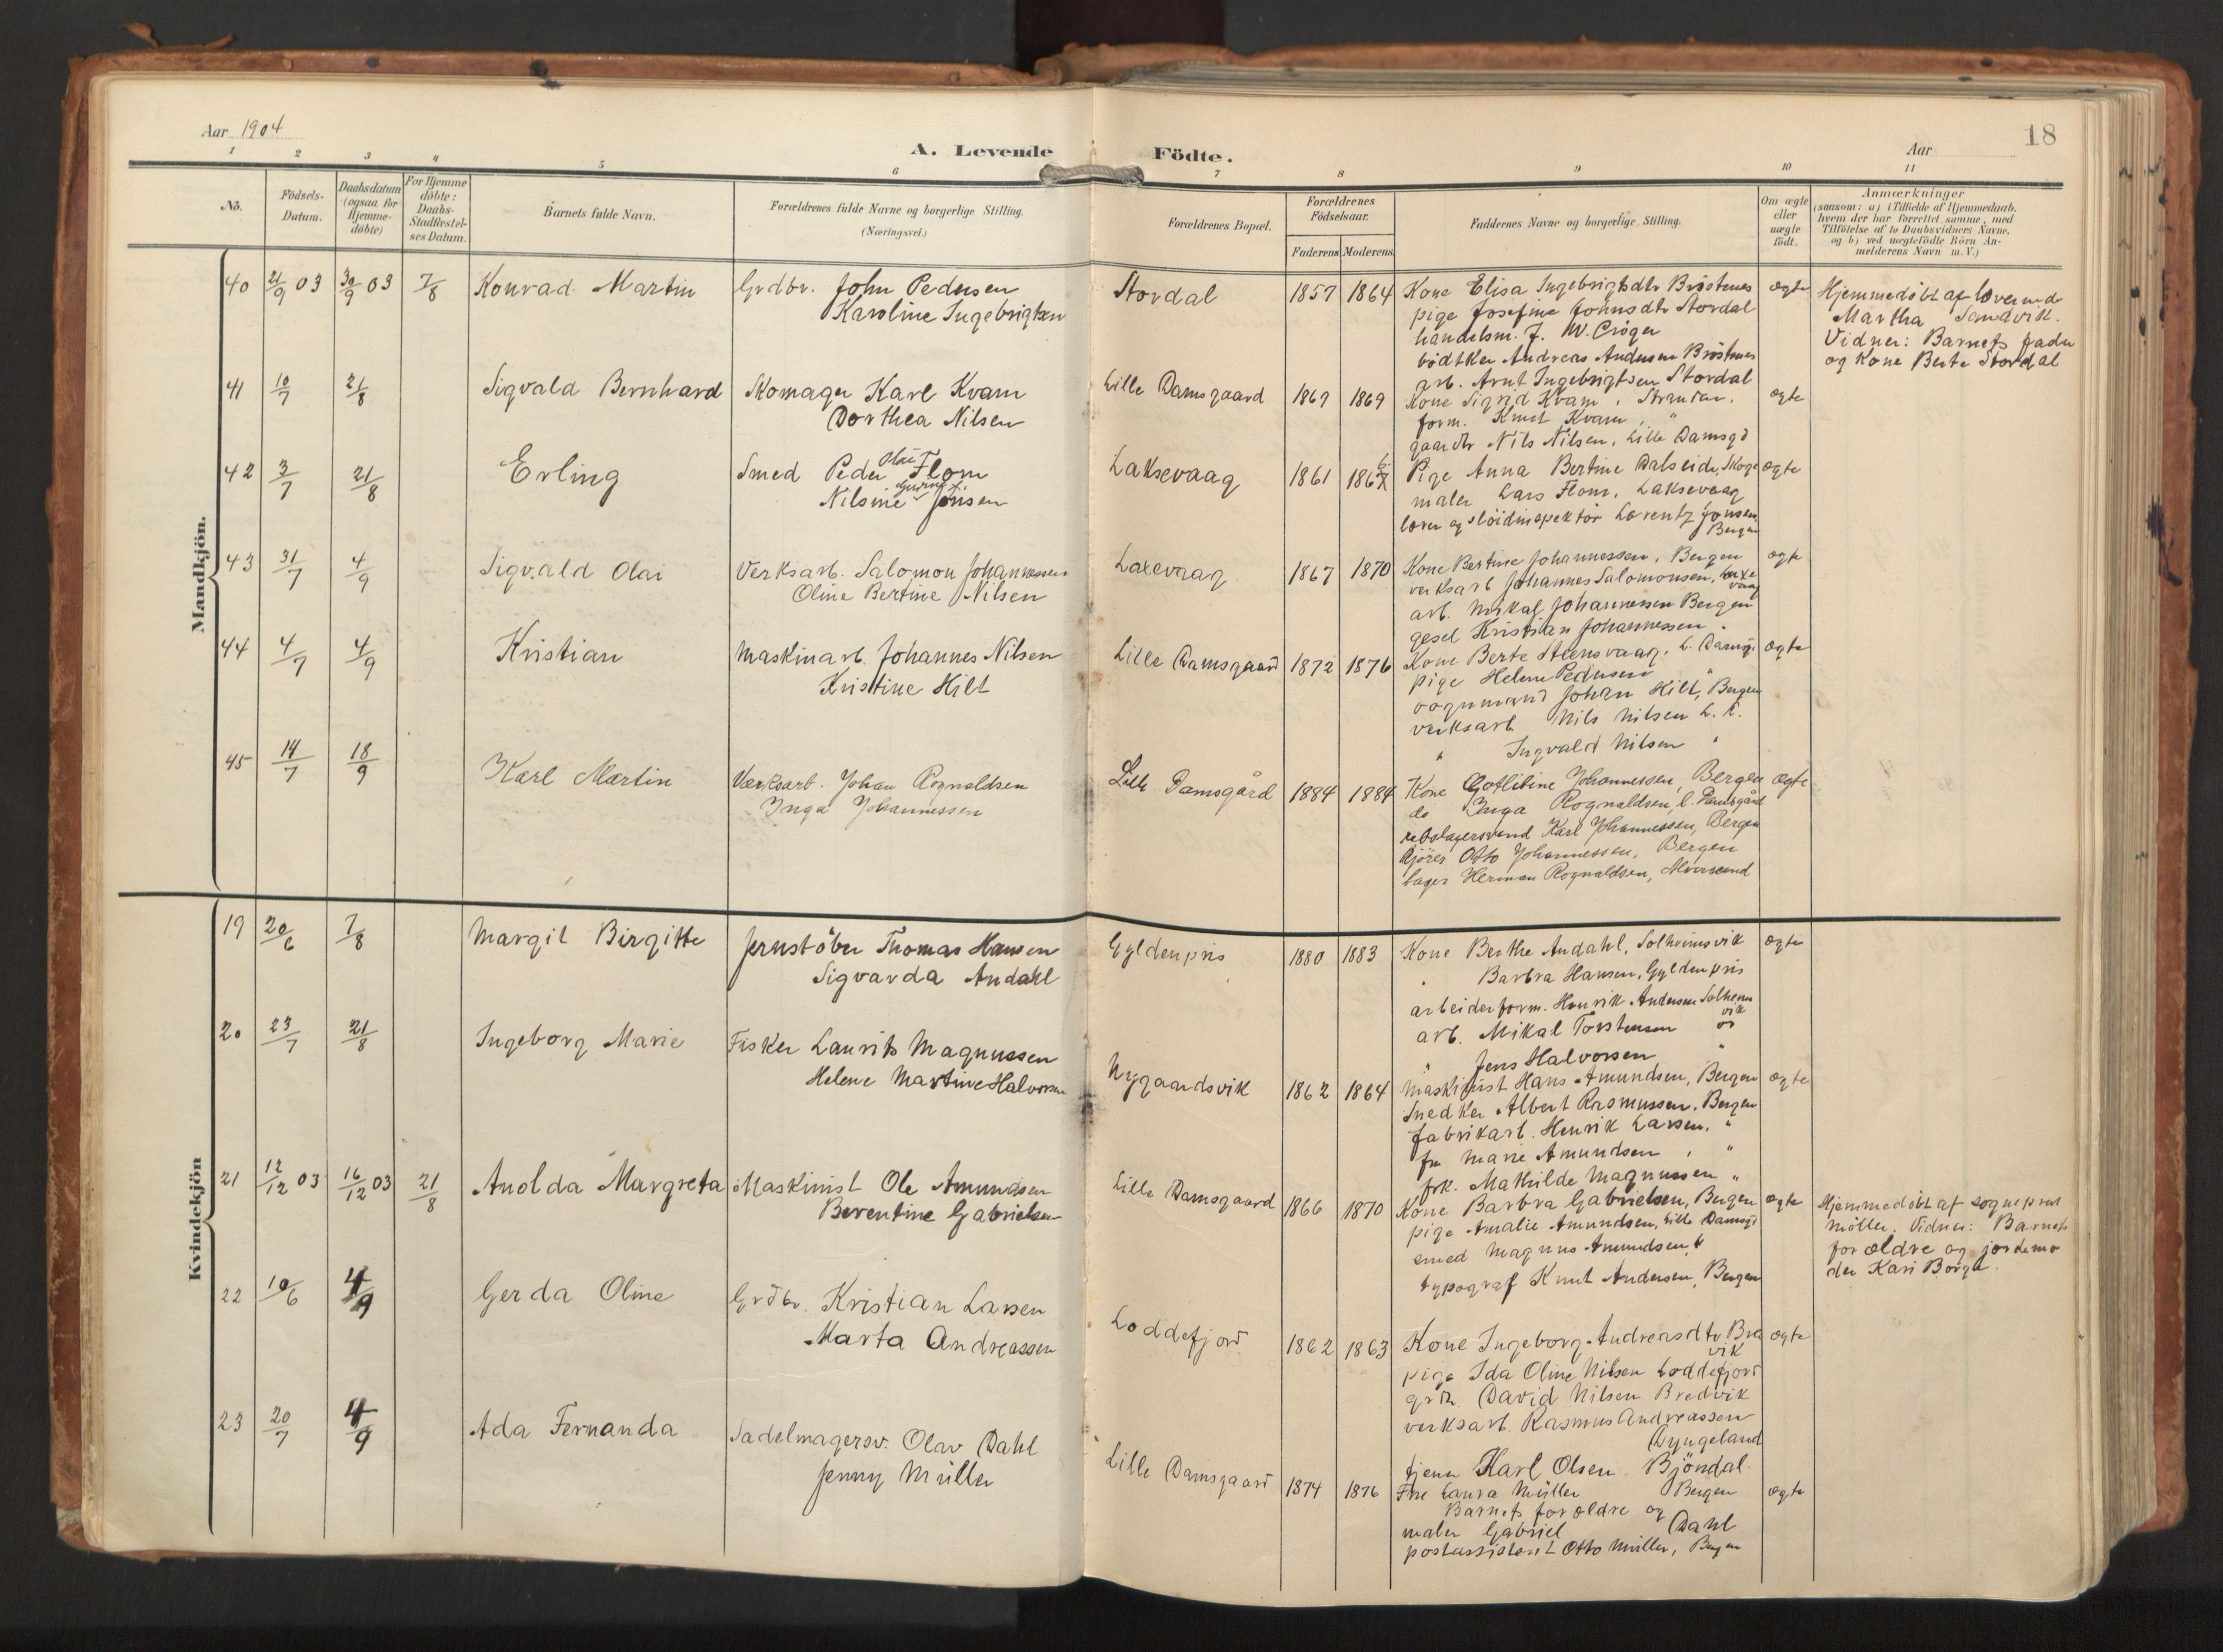 Aar 1904
A. Levende Födte.
Aar
18
1 2 3 4 5 6 7 8 9 10 11
No. Födsels-Datum. Daabsdatum (ogsaa for Hjemme-döbte) For Hjemme döbte: Daabs-Stadfæstel-ses Datum. Barnets fulde Navn. Forældrenes fulde Navne og borgerlige Stilling. (Næringsvei.) Forældrenes Bopæl. Forældrenes Födselsaar. Faderens Moderens Faddernes Navne og borgerlige Stilling. Om ægte eller uægte födt. Anmærkninger (saasom: a) i Tilfælde af Hjemmedaab, hvem der har forrettet samme, med Tilföielse af to Daabsvidners Navne, og b) ved uægtefödte Börn An-melderens Navn m. V.)
Mandkjön.
40 21/9 03 30/9 03 7/8 Konrad Martin Grdbr. John Pedersen Stordal 1857 1864 Kone Elisa Ingebrigtsdtr Bröstenes ægte Hjemmedöbt af lærerinde
Karoline Ingebrigtsen pige Josefine Johnsdtr Stordal Martha Sandvik.
handelsm. J. W. Cröger Vidner: Barnets fader
bödtker Andreas Andersen Bröstenes og Kone Berte Stordal
arb. Arnt Ingebrigtsen Stordal
41 10/7 21/8 Sigvald Bernhard Skomager Karl Kvam Lille Damsgaard 1869 1869 Kone Sigrid Kvam, ægte
Dorthea Nilsen form. Knut Kvam, "
gaardbr Nils Nilsen, Lille Damsgd
42 3/7 21/8 Erling Smed Peder Olai Flom Laksevaag 1861 186 Pige Anna Bertine Dalseide, Skoge ægte
Nilsine Jonsen maler Lars Flom, Laksevaag
lærer og slöidinspektör Lorentz Jonsen, Bergen
43 31/7 4/9 Sigvald Olai Verksarb. Salomon Johannessen Laxevaag 1867 1870 Kone Bertine Johannessen, Bergen ægte
Oline Bertine Nilsen verksarb Johannes Salomonsen, Laxevaag
arb. Mikal Johannessen Bergen
gesel Kristian Johannessen "
44 4/7 4/9 Kristian Maskinarb. Johannes Nilsen Lille Damsgaard 1872 1876 Kone Berte Stensvaag, L. Damsg. ægte
Kristine Hilt pige Helene Pedersen "
vognmand Johan Hilt, Bergen
verksarb Nils Nilsen L. D.
" Ingvald Nilsen "
45 14/7 18/9 Karl Martin Værksarb. Johan Rognaldsen Lille Damsgård 1884 1884 Kone Gotlitine Johannessen, Bergen ægte
Inga Johannessen do Inga Rognaldsen l. Damsgård
rebslagersvend Karl Johannessen, Bergen
Kjörer Otto Johannessen, Bergen
bager Herman Rognaldsen, Alversund
Kvindekjön
19 20/6 7/8 Margit Birgitte Jernstöber Thomas Hansen Gyldenpris 1880 1883 Kone Berthe Andahl, Solheimsvik ægte
Sigvarda Andahl " Barbra Hansen, Gyldenpris
arbeiderform. Henrik Andersen Solheimsvik
arb. Mikal Torstensen "
" Jens Halvorsen "
20 23/7 21/8 Ingeborg Marie Fisker Laurits Magnussen Nygaardsvik 1862 1864 Maskinist Hans Amundsen, Bergen ægte
Helene Martine Halvorsen Snedker Albert Rasmussen, Bergen
fabrikarb. Henrik Larsen, "
fru Marie Amundsen, "
frk. Mathilde Magnussen "
21 12/12 03 16/12 03 21/8 Anolda Margreta Maskinist Ole Amundsen Lille Damsgaard 1866 1870 Kone Barbra Gabrielsen, Bergen ægte Hjemmedöbt af sogneprest
Berentine Gabrielsen pige Amalie Amundsen, Lille Damsgd Möller. Vidner: Barnets
smed Magnus Amundsen, " forældre og jordemo
typograf Knut Andersen, Bergen der Kari Borge.
22 10/6 4/9 Gerda Oline Grdbr. Kristian Larsen Loddefjord 1862 1863 Kone Ingeborg Andreasdtr Bravik ægte
Marta Andreassen pige Ida Oline Nilsen Loddefjord
grdb. David Nilsen Bredvik
verksarb. Rasmus Andreassen Dyngeland
tjener Karl Olsen Bjöndal
23 20/7 4/9 Ada Fernanda Sadelmagersv. Olav Dahl Lille Damsgaard 1874 1876 Frue Laura Müller Bergen ægte
Jenny Müller Barnets forældre og
maler Gabriel Dahl
postassistent Otto Müller, Bergen